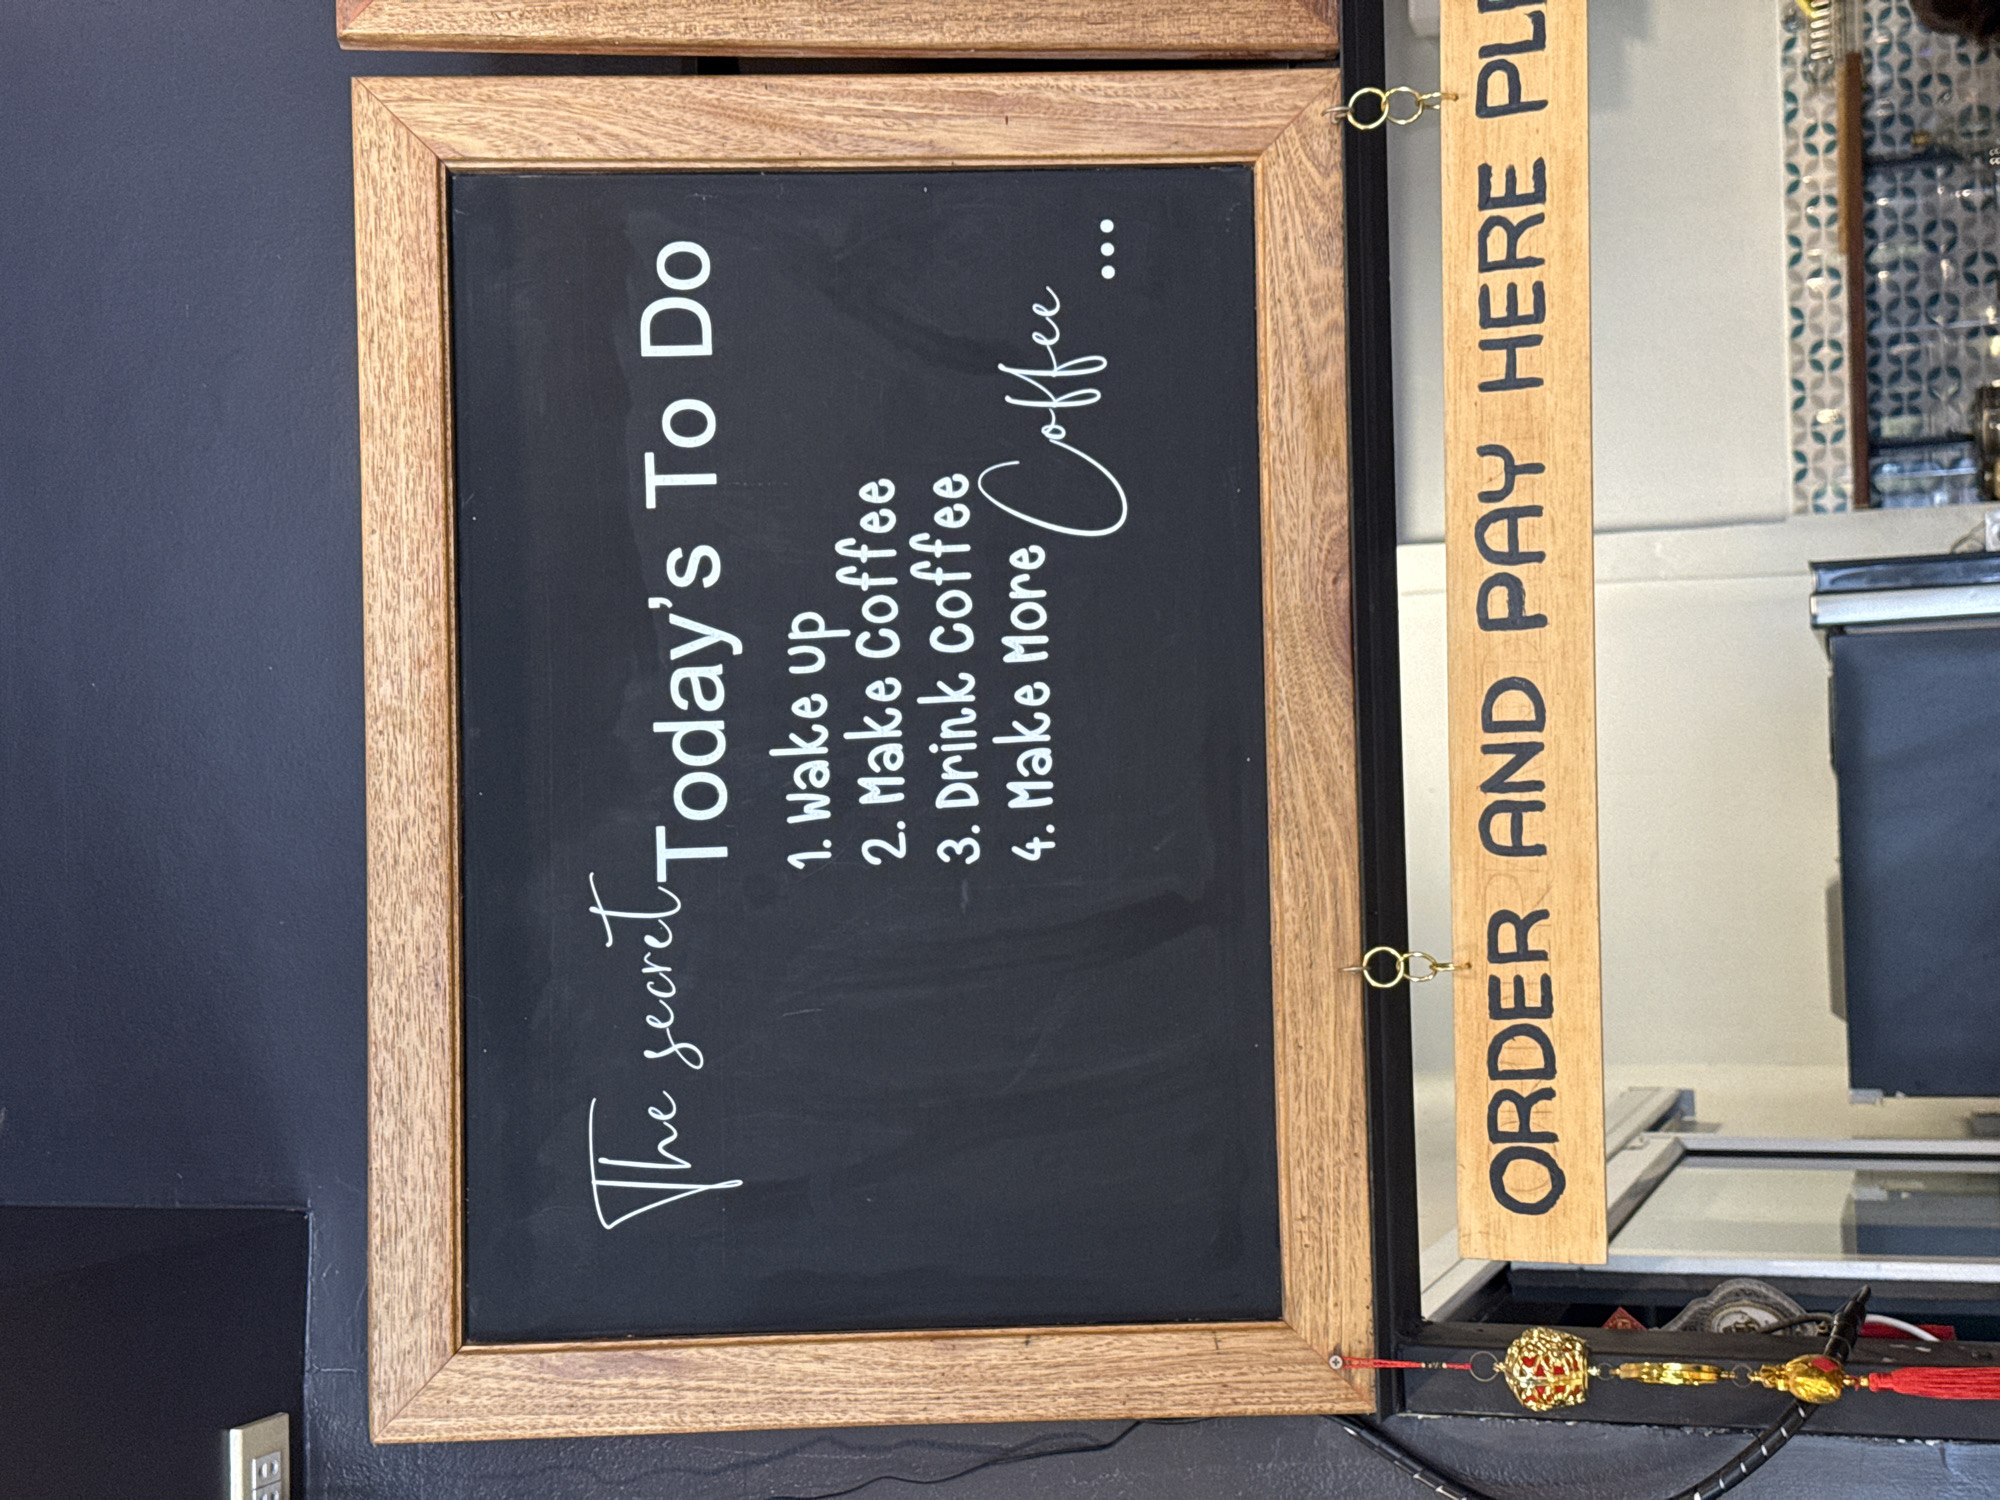 The secret Today's To Do
1. Wake up
2. Make Coffee
3. Drink Coffee
4. Make More Coffee ...
ORDER AND PAY HERE